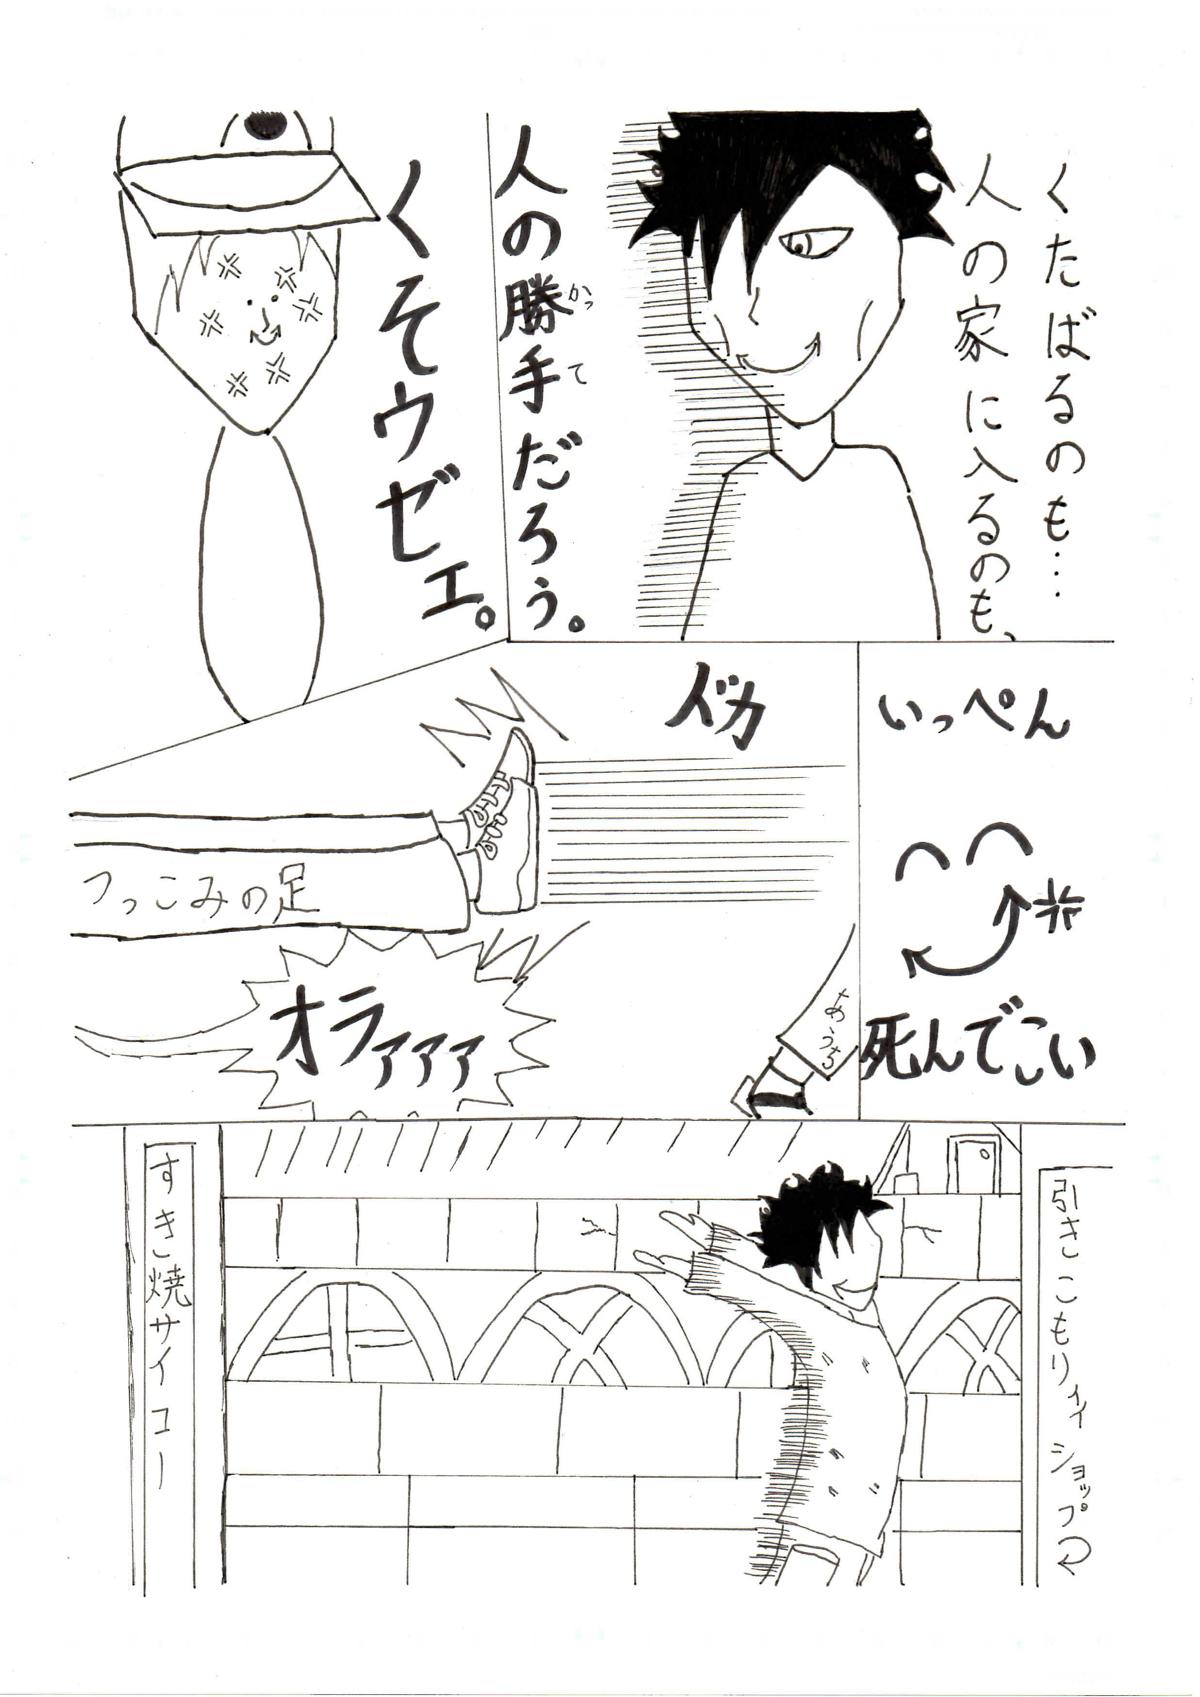 くたばるのも…
人の家に入るのも、
人の勝手だろう。
かって
くそウゼェ。
いっぺん
死んでこい
ドカ
つっこみの足
オラァァァ
あうち
引きこもりィィショップ
すき焼サイコー